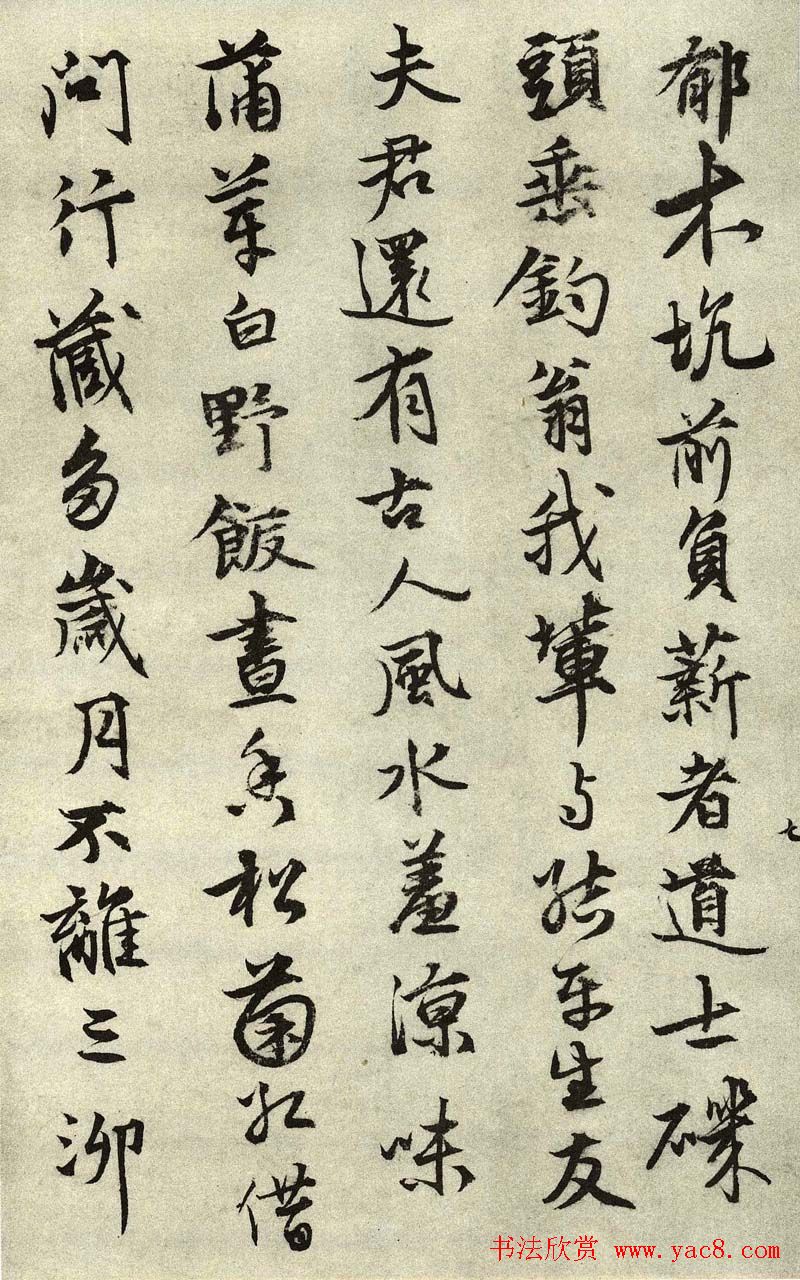 郁木坑前負薪者道士磯
頭垂釣翁我輩与結平生友
夫君還有古人風水羞涼味
蒲芽白野飯晝香松菌紅借
問行藏多歲月不離三泖
七
书法欣赏 www.yac8.com